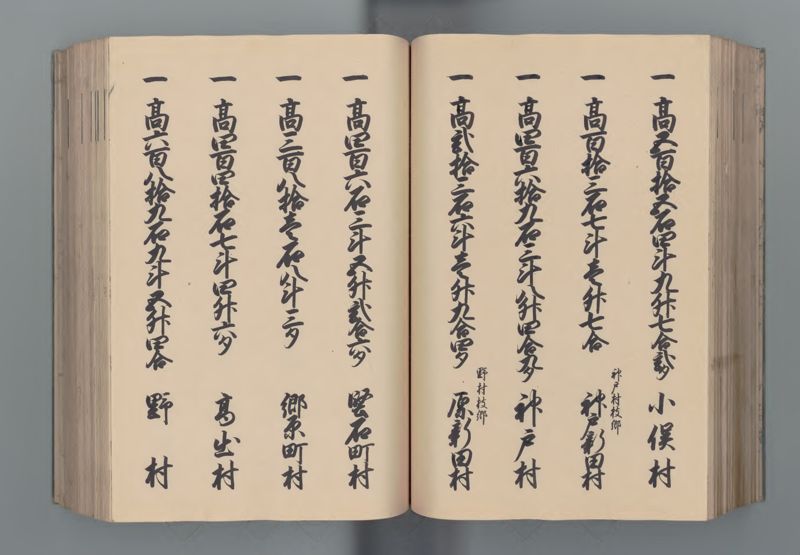 一 高五百拾五石四斗九升七合弐夕 小俣村
一 高百拾三石七斗壱升七合 神戸村枝郷 神戸新田村
一 高四百六拾九石三斗八升四合五夕 神戸村
一 高弐拾三石六斗壱升九合四夕 野村枝郷 原新田村
一 高四百六石三斗五升弐合六夕 竪石町村
一 高三百八拾壱石八斗三夕 郷原町村
一 高四百四拾石七斗四升六夕 高出村
一 高六百八拾九石九斗五升四合 野村